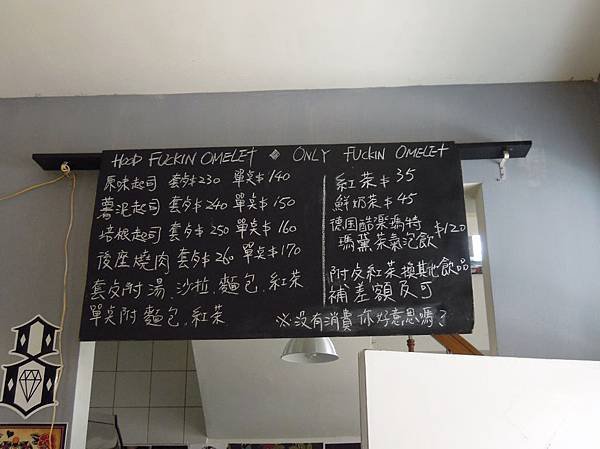 HOOD FUCKIN OMELET ◆ ONLY FUCKIN OMELET
原味起司 套歺$230 單点$140
薯泥起司 套歺$240 單点$150
培根起司 套歺$250 單点$160
後座燒肉 套歺$260 單点$170
套歺附湯、沙拉、麵包、紅茶
單点附麵包、紅茶
紅茶$35
鮮奶茶$45
德国酷樂瑪特
瑪黛茶氣泡飲 $120
附歺紅茶換其他飲品
補差額及可
※沒有消費你好意思嗎？
8